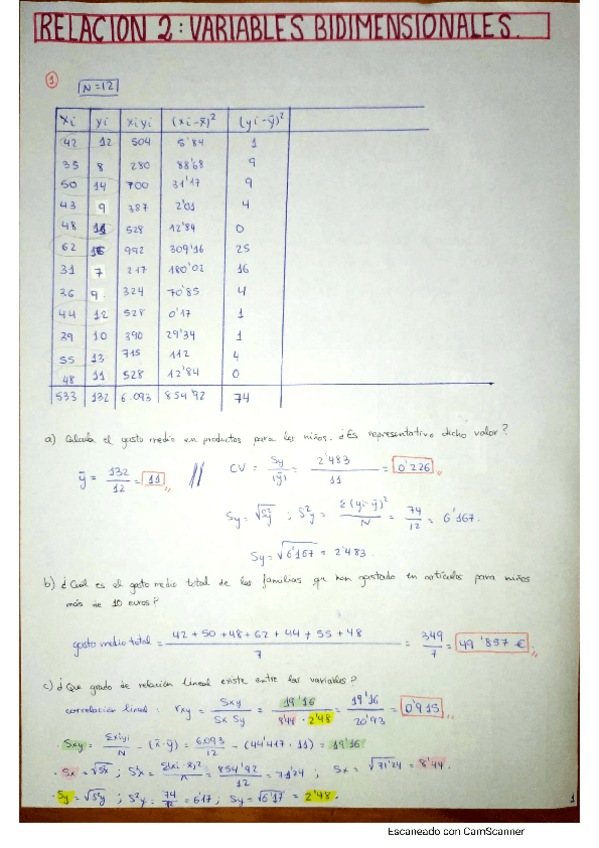 RELACION 2: VARIABLES BIDIMENSIONALES.
1 N=12
xi yi xiyi (xi-x̄)² (yi-ȳ)²
42 12 504 5'84 1
35 8 280 88'68 9
50 14 700 31'17 9
43 9 387 2'01 4
48 11 528 12'84 0
62 16 992 309'16 25
31 7 217 180'02 16
36 9 324 70'85 4
44 12 528 0'17 1
39 10 390 29'34 1
55 13 715 112 4
48 11 528 12'84 0
533 132 6.093 854'92 74
a) Calcula el gasto medio en productos para los niños. ¿Es representativo dicho valor?
ȳ = 132/12 = 11 // CV = Sy/|ȳ| = 2'483/11 = 0'226
Sy = √S²y ; S²y = Σ(yi-ȳ)²/N = 74/12 = 6'167.
Sy = √6'167 = 2'483.
b) ¿Cuál es el gasto medio total de las familias que han gastado en artículos para niños
más de 10 euros?
gasto medio total = 42 + 50 + 48 + 62 + 44 + 55 + 48 / 7 = 349/7 = 49'857 €
c) ¿Que grado de relación lineal existe entre las variables?
correlación lineal : rxy = Sxy/Sx Sy = 19'16/8'44 · 2'48 = 19'16/20'93 = 0'915
· Sxy = Σxiyi/N - (x̄·ȳ) = 6.093/12 - (44'417 · 11) = 19'16
· Sx = √S²x ; S²x = Σ(xi-x̄)²/N = 854'92/12 = 71'24 ; Sx = √71'24 = 8'44.
· Sy = √S²y ; S²y = 74/12 = 6'17 ; Sy = √6'17 = 2'48.
1
Escaneado con CamScanner